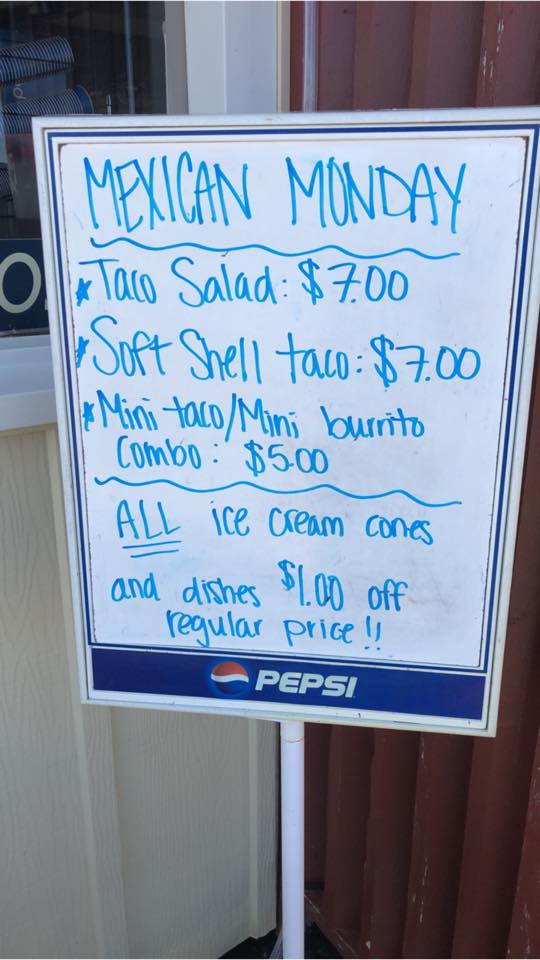 MEXICAN MONDAY
* Taco Salad: $7.00
* Soft Shell taco: $7.00
* Mini taco/Mini burrito
Combo: $5.00
ALL ice cream cones
and dishes $1.00 off
regular price!!
PEPSI
O